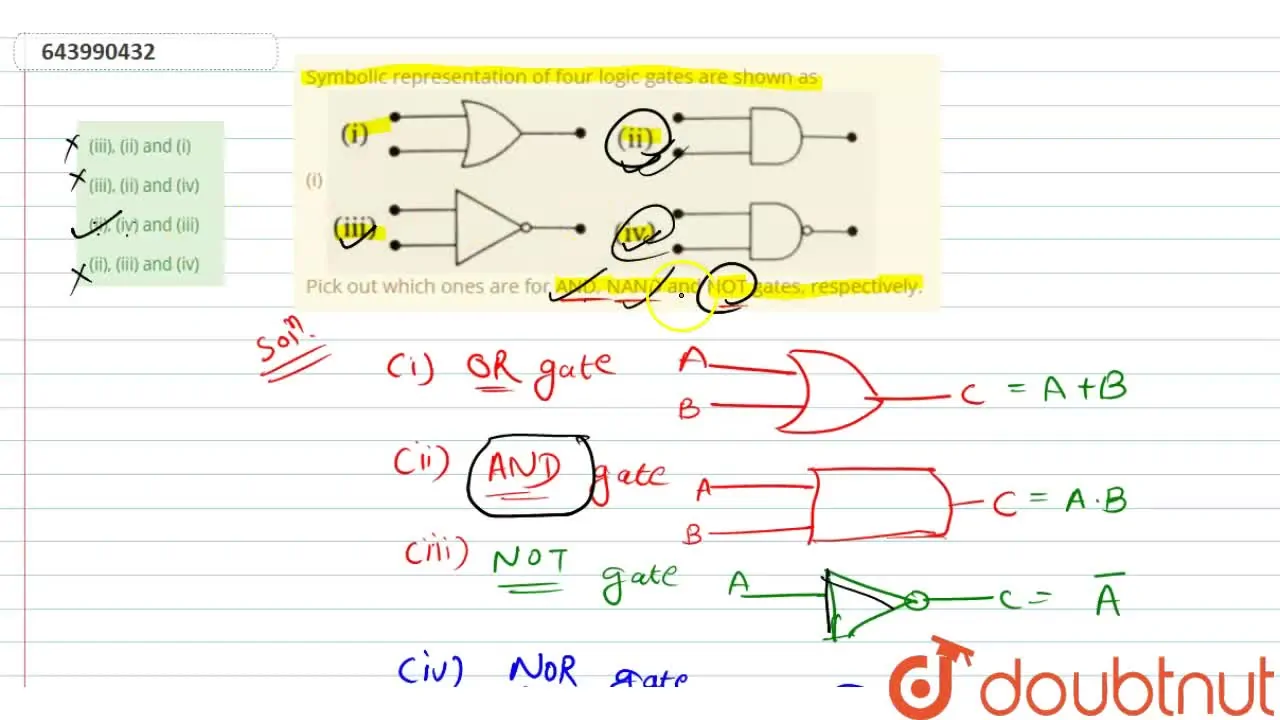 643990432
Symbolic representation of four logic gates are shown as
(i) (ii)
(i)
(iii) (iv)
Pick out which ones are for AND, NAND and NOT gates, respectively.
(iii), (ii) and (i)
(iii), (ii) and (iv)
(ii), (iv) and (iii)
(ii), (iii) and (iv)
Solⁿ.
(i) OR gate A B C = A + B
(ii) AND gate A B C = A . B
(iii) NOT gate A C = A̅
(iv) NOR gate
doubtnut